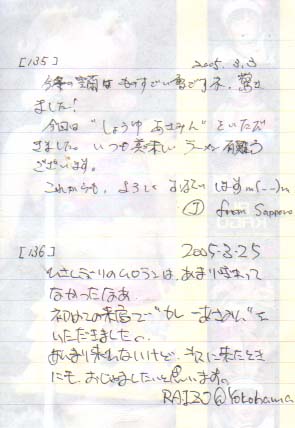 [135] 2005.3.3
今冬の室蘭はものすごい雪ですネ。驚き
ました!
今回は"しょうゆ あさみん"をいただ
きました。いつも美味しいラーメン有難う
ございます。
これからも、よろしく おねがいします m(--)m
from Sapporo
[136] 2005-3-25
ひさしぶりのムロランは、あまり変わって
なかったなあ
初めての来店で"カレーあさみん"を
いただきました。
あんまり来れないけど、また来たとき
にも、おじゃましたいと思います。
RAIZO@Yokohama